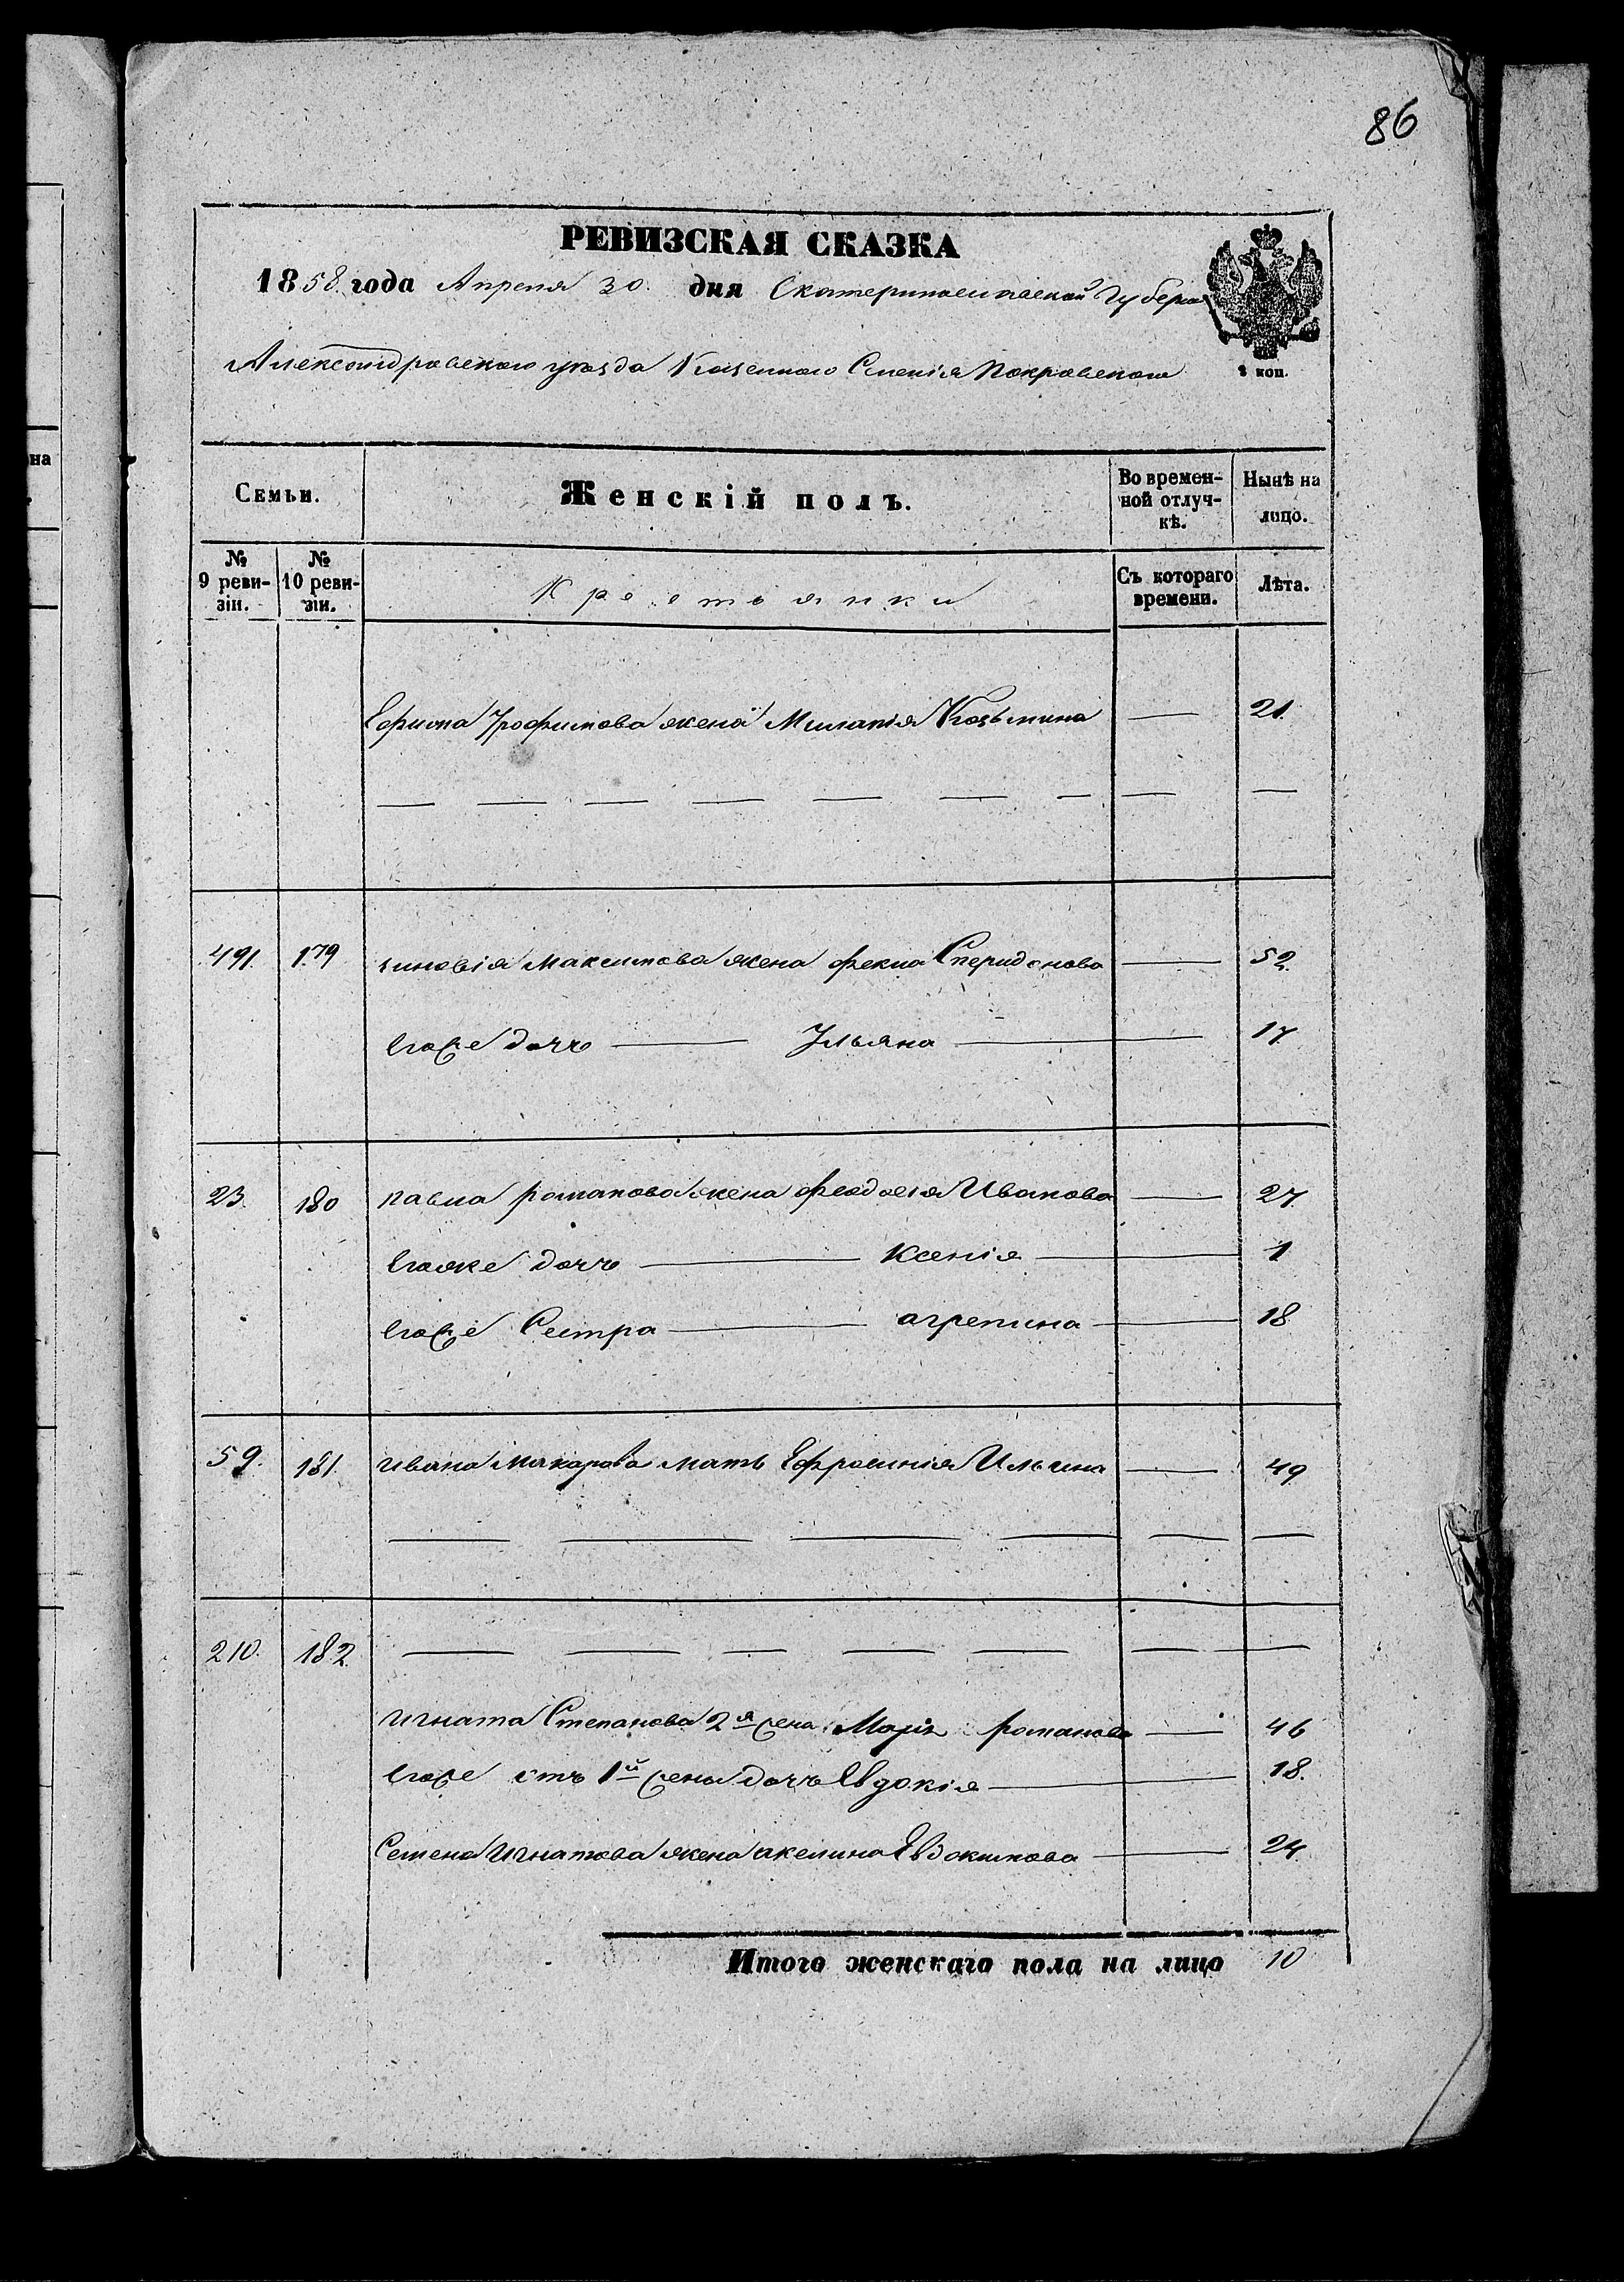 86
РЕВИЗСКАЯ СКАЗКА
1858 года Апреля 30. дня Екатеринославской Губерніи
Александровского уѣзда Казенного Селенія Покровского
2 коп.
на
Семьи. Женскій полъ. Во времен- Нынѣ на
ной отлуч- лицо.
кѣ.
№ № Крестьянки Съ котораго Лѣта.
9 реви- 10 реви- времени.
зіи. зіи.
Ефима Трофимова жена Миланія Козьмина — 21.
491. 179 зиновія Максимова жена фекла Сперидонова — 52.
Егоже дочь — Ульяна — 17.
23. 180 павла романова жена феодосія Иванова — 27.
Егоже дочь — Ксенія — 1
Егоже Сестра — агрепина — 18
59. 181. ивана Макарова мать Ефросинія Ильина — 49.
210. 182.
игната Степанова 2я жена Марія романова — 46
Егоже отъ 1й жены дочь Евдокія — 18.
Семена Игнатова жена акелина Евдокимова — 24.
Итого женскаго пола на лицо 10